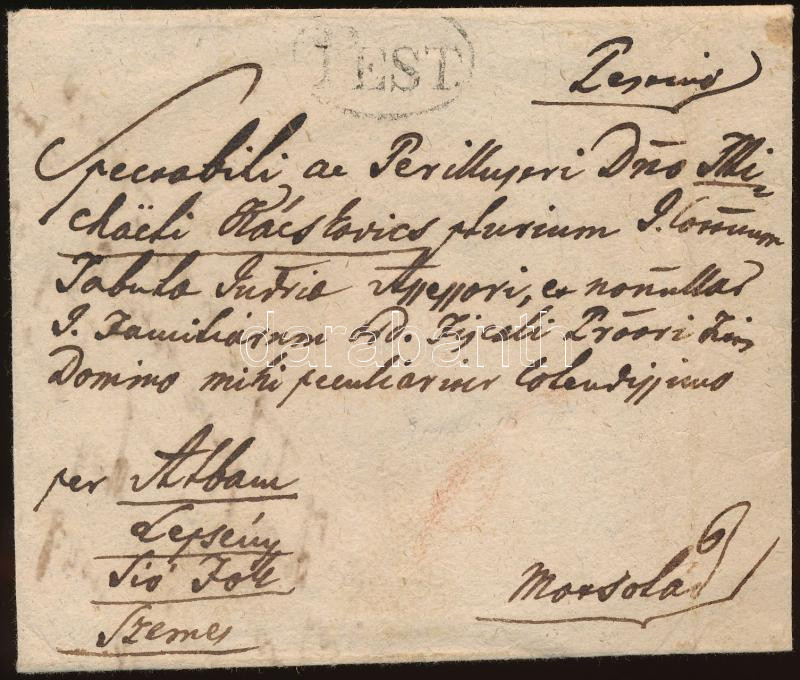 PEST.
Pestino
Spectabili ac Perillustri Dn̄o Mi-
chäeli Kácskovics plurium I. Com̄uum
Tabulæ Iud̄riæ Assessori, et non̄ullar
I. Familiarum Fiscali Prōori
Domino mihi peculiariter Colendissimo
per Albam
Lepsény
Sió Fok
Szemes
darabanth